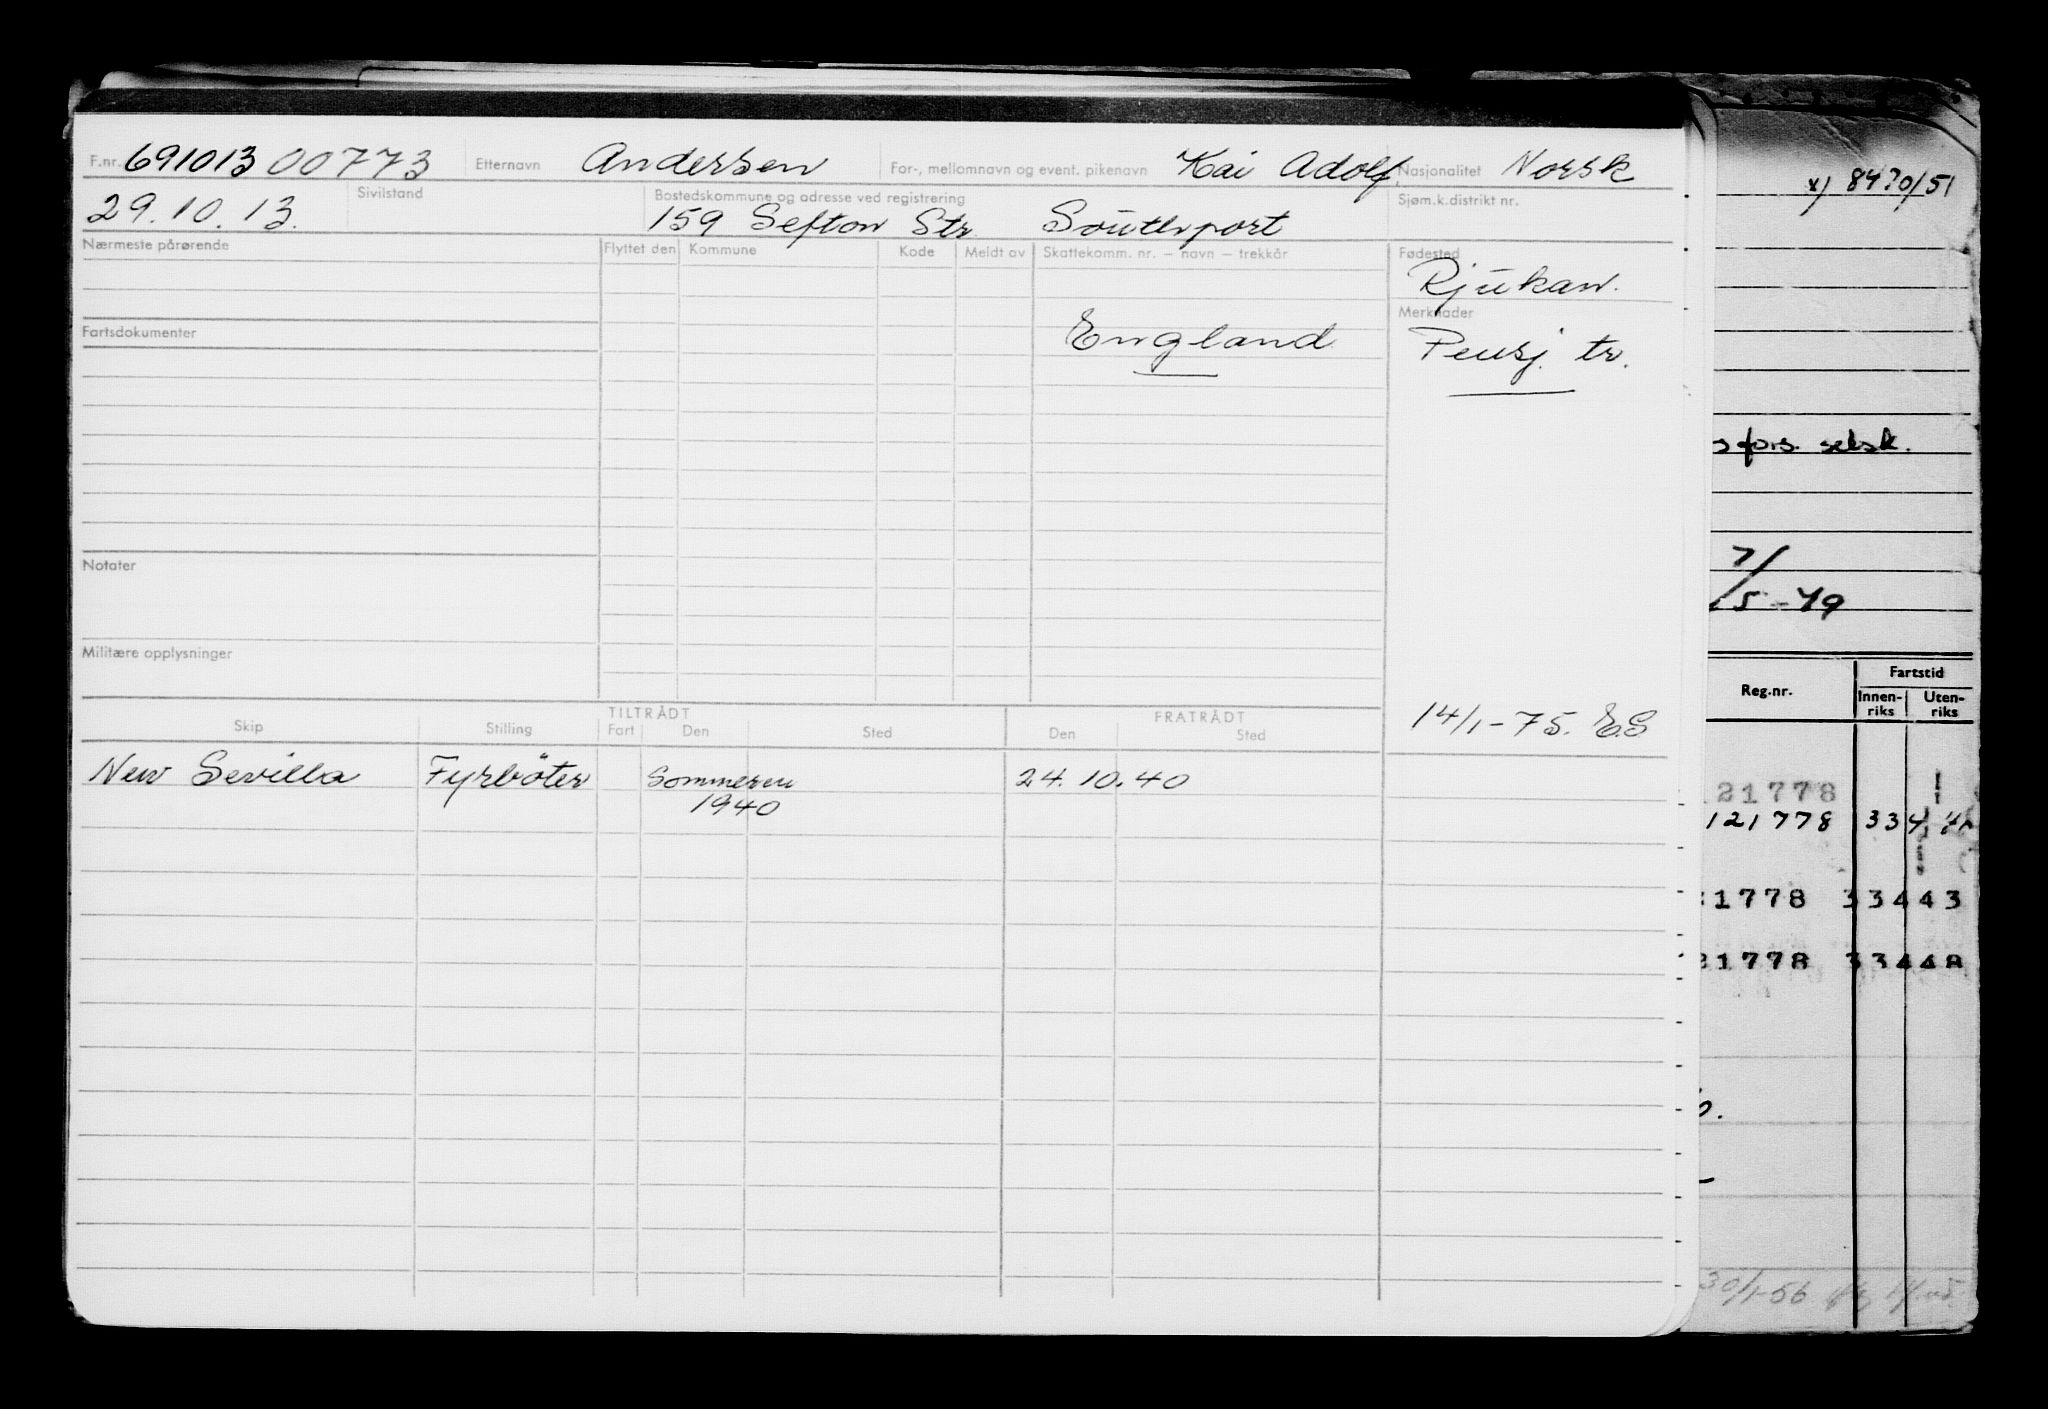 F.nr. 691013 00773 Etternavn Andersen For-, mellomnavn og event. pikenavn Kai Adolf. Nasjonalitet Norsk
29.10.13. Sivilstand Bostedskommune og adresse ved registrering Sjøm.k.distrikt nr.
159 Sefton Str. Southport
Nærmeste pårørende Flyttet den Kommune Kode Meldt av Skattekomm. nr. – navn – trekkår Fødested
Rjukan.
Fartsdokumenter England Merknader
Pensj. tr.
Notater
Militære opplysninger
14/1-75. E.S
TILTRÅDT FRATRÅDT
Skip Stilling Fart Den Sted Den Sted
New Sevilla Fyrbøter Sommeren 24.10.40
1940
x) 8470/51
fors. selsk.
7/5-49
Reg.nr. Fartstid
Innen-riks Uten-riks
21778
121778 334
1778 33443
21778 33448
30/1-56